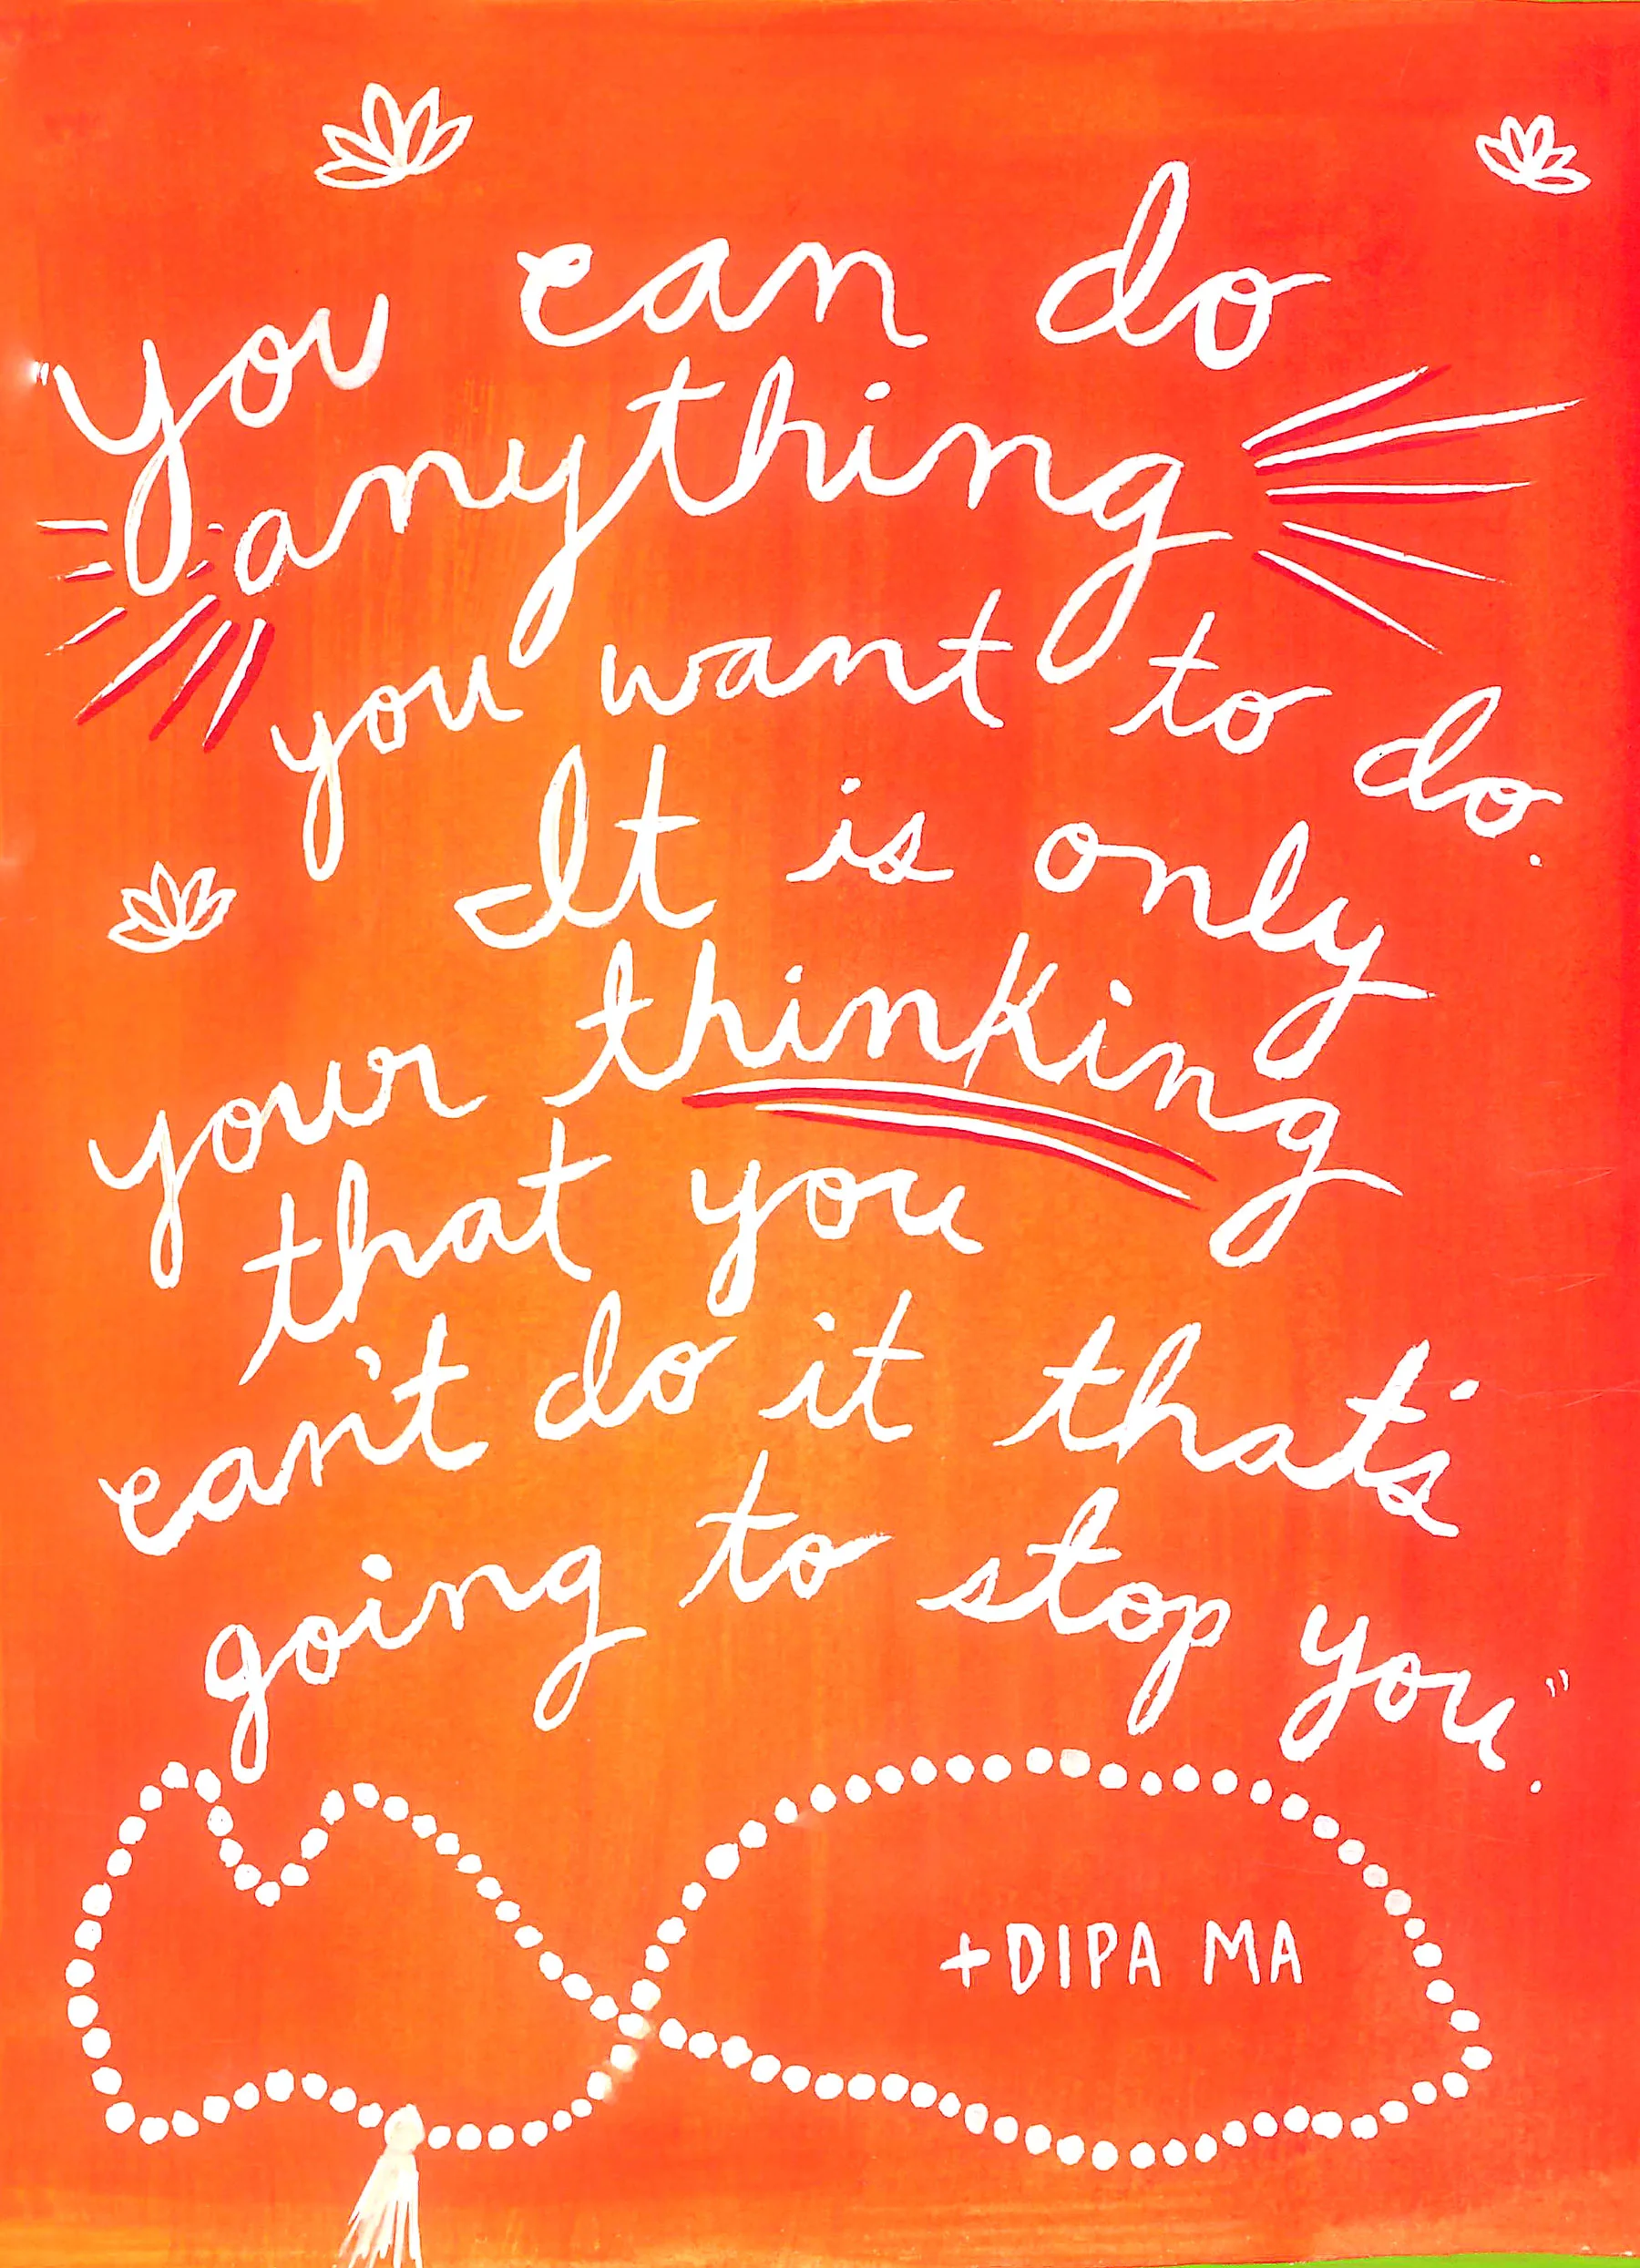 "You can do
anything
you want to do.
It is only
your thinking
that you
can't do it that's
going to stop you."
+DIPA MA